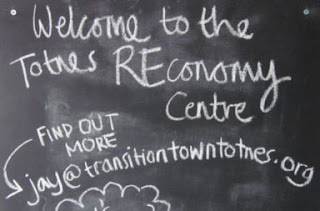 Welcome to the
Totnes REconomy
Centre
FIND OUT
MORE
jay@transitiontowntotnes.org